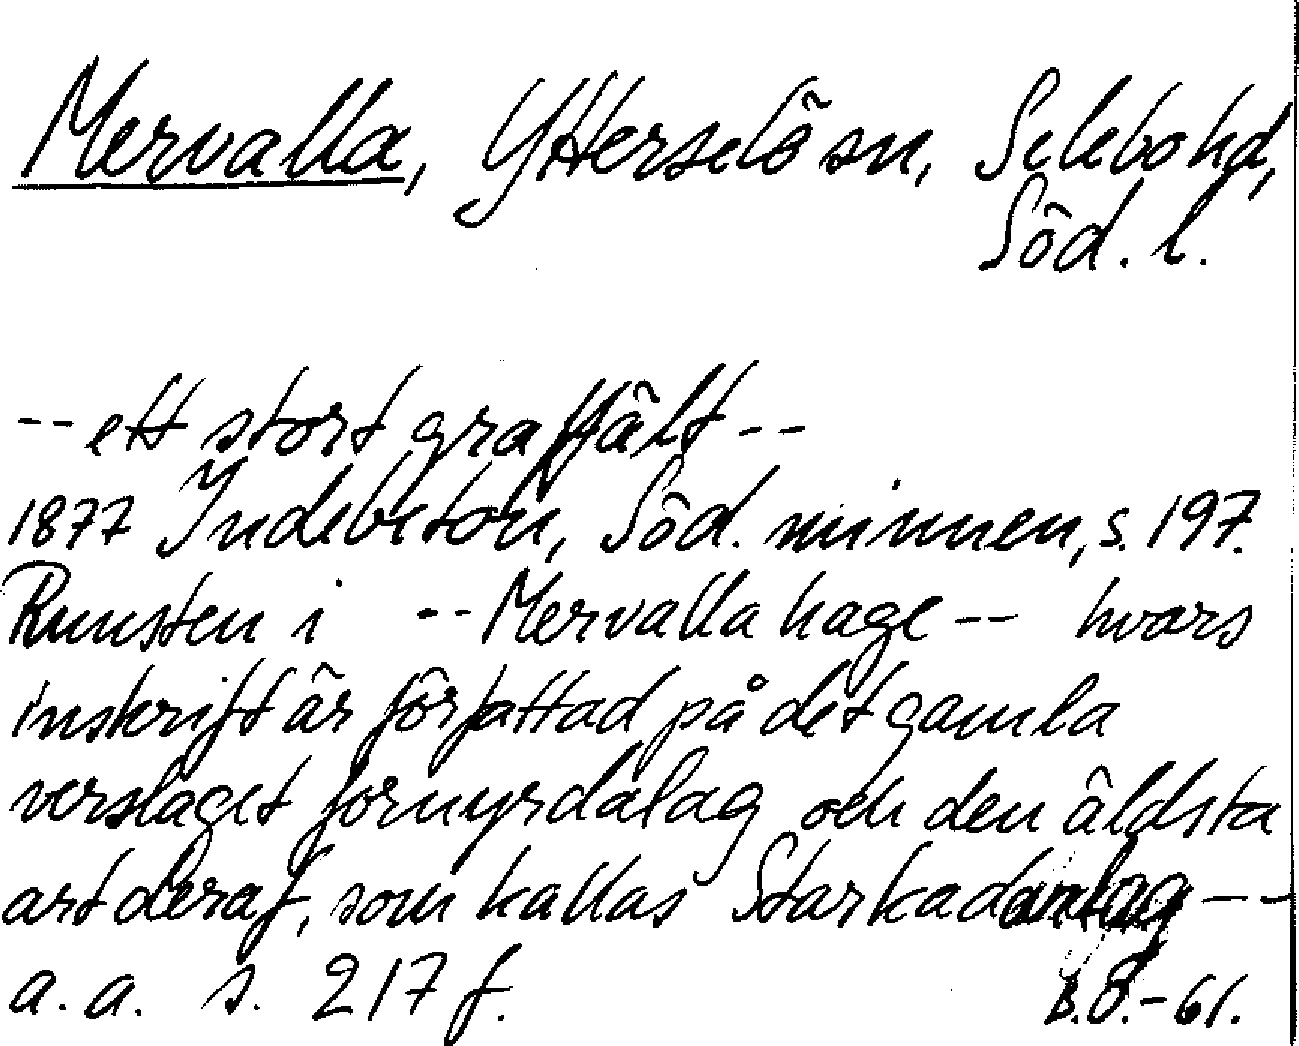 Mervalla, Ytterselö sn, Selebo hd,
Söd. l.
-- ett stort graffält --
1877 Indebetou, Söd. minnen, s. 197.
Runsten i -- Mervalla hage -- hvars
inskrift är författad på det gamla
verslaget fornyrdalag och den äldsta
art deraf, som kallas Starkadarlag --
a. a. s. 217 f.
B.Ö.-61.